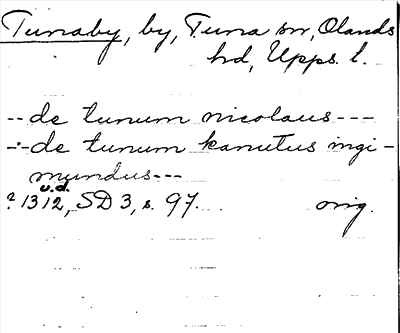 Tunaby, by, Tuna sn, Olands
hd, Upps. l.
-- de tunum nicolaus ---
-:- de tunum kanutus ingi-
mundus ---
u.d.
? 1312, SD 3, s. 97. orig.